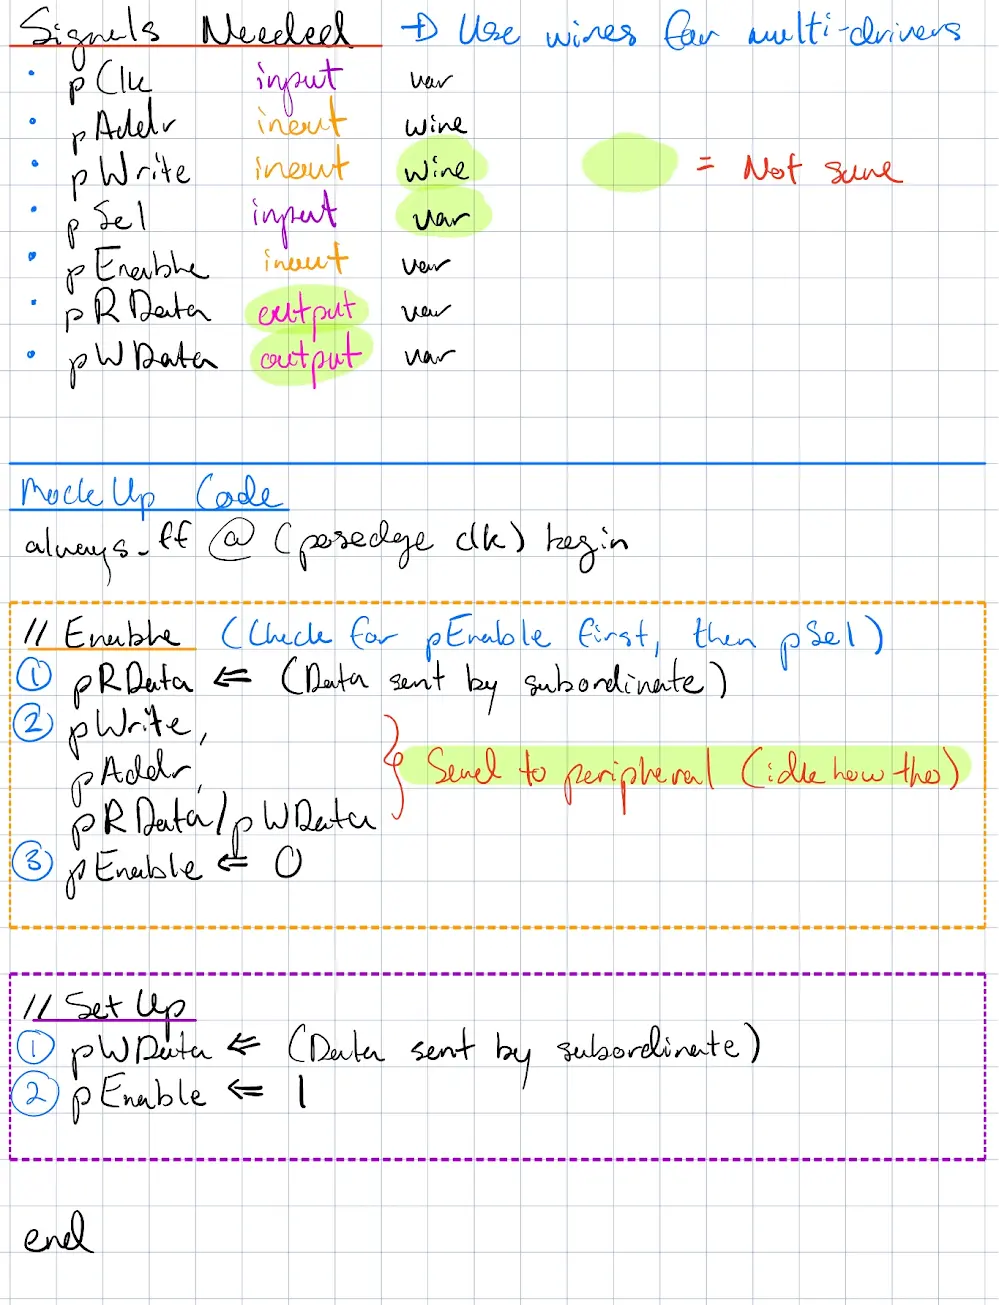 Signals Needed → Use wires for multi-drivers
• pClk input var
• pAddr inout wire
• pWrite inout wire = Not sure
• pSel input var
• pEnable inout var
• pRData output var
• pWData output var
Mock Up Code
always_ff @ (posedge clk) begin
// Enable (Check for pEnable first, then pSel)
① pRData <= (Data sent by subordinate)
② pWrite,
pAddr, } Send to peripheral (idk how tho)
pRData/pWData
③ pEnable <= 0
// Set Up
① pWData <= (Data sent by subordinate)
② pEnable <= 1
end